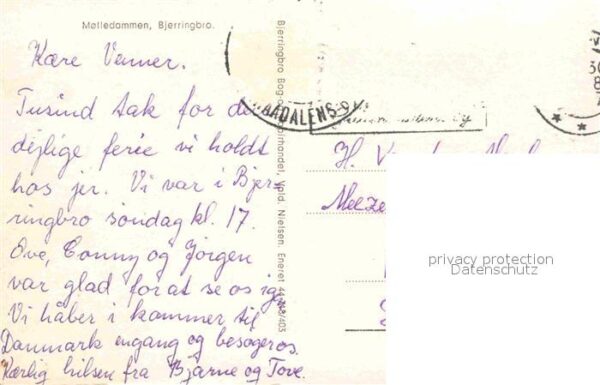 Mølledammen, Bjerringbro.
Kære Venner.
Tusind tak for den
dejlige ferie vi holdt
hos jer. Vi var i Bjer-
ringbro söndag kl. 17.
Ove, Conny og Jörgen
var glad for at se os igen
Vi håber i kommer til
Danmark engang og besøger os.
Kærlig hilsen fra Bjarne og Tove.
Bjerringbro Bog- Vald. Nielsen. Eneret
ÅDALENS
30
8
H.
privacy protection
Datenschutz